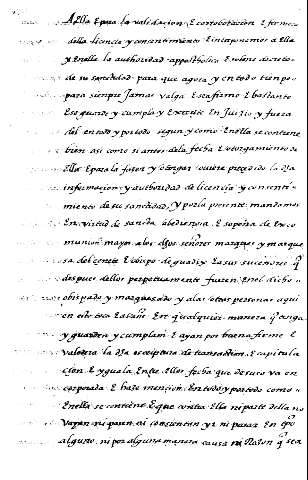 A ella E para la validacion E corroboracion E firmeza
della licencia y consentimiento E interponemos a Ella
y Enella la authoridad appostholica E solene decreto
de su sanctidad para que agora y en todo tienpo
para siempre Jamas valga E sea firme E bastante
E se guarde y cumpla y Execute En Juizio y fuera
del en todo y por todo segun y como Enella se contiene
bien asi como si antes dela fecha E otorgamiento de
Ella E para la fazer y otorgar oviera precedido la dha
informacion y authoridad de licencia y consenti
miento de su sanctidad, y por la presente mandamos
En virtud de sancta obediencia E so pena de Exco
munion mayor a los dhos señores marques y marque
sa del cenete E obispo de guadix E a sus sucesores q
despues dellos perpetuamente fueren Enel dicho
obispado y marquesado y a las otras personas aqui
en esto toca E atañe En qualquier manera q tenga
y guarden y cumplan E ayan por buena firme E
valedera la dha escriptura de transacion E capitula
cion E yguala Entre Ellos fecha que de suso va en
corporada E haze mencion En todo y por todo como
Enella se contiene E que contra Ella ni parte della no
vayan ni pasen ni consientan yr ni pasar En tpo
alguno ni por alguna manera causa ni Razon q sea